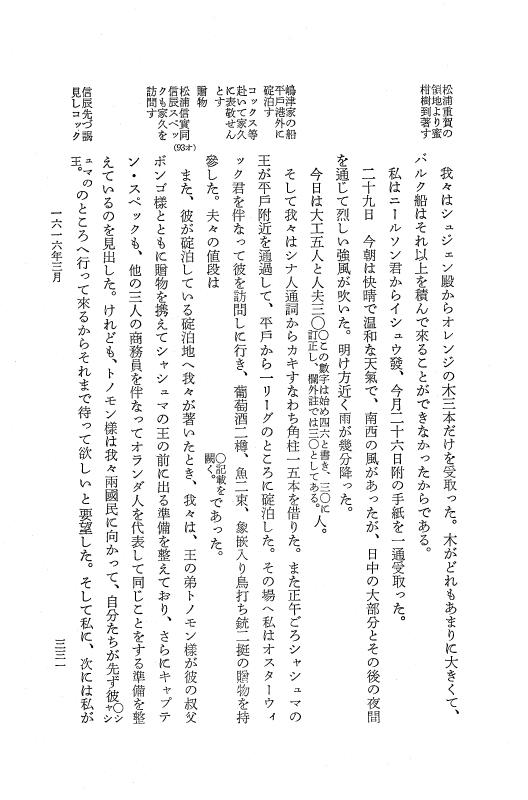 松浦重賀の
領地より蜜
柑樹到著す
嶋津家の船
平戸港外に
碇泊す
コックス等
赴いて家久
に表敬せん
とす
贈物
松浦信實同
信辰スペッ
クも家久を
訪問す
(93オ)
信辰先づ謁
見しコック
我々はシュジェン殿からオレンジの木三本だけを受取った。木がどれもあまりに大きくて、
バルク船はそれ以上を積んで來ることができなかったからである。
私はニールソン君からイシュウ發、今月二十六日附の手紙を一通受取った。
二十九日　今朝は快晴で温和な天氣で、南西の風があったが、日中の大部分とその後の夜間
を通じて烈しい強風が吹いた。明け方近く雨が幾分降った。
今日は大工五人と人夫三〇〇この數字は始め四六と書き、三〇に訂正し、欄外註では三〇としてある。人。
そして我々はシナ人通詞からカキすなわち角柱一五本を借りた。また正午ごろシャシュマの
王が平戸附近を通過して、平戸から一リーグのところに碇泊した。その場へ私はオスターウィ
ック君を伴なって彼を訪問しに行き、葡萄酒二樽、魚二束、象嵌入り鳥打ち銃二挺の贈物を持
參した。夫々の値段は〇記載を闕く。であった。
また、彼が碇泊している碇泊地へ我々が著いたとき、我々は、王の弟トノモン様が彼の叔父
ボンゴ様とともに贈物を携えてシャシュマの王の前に出る準備を整えており、さらにキャプテ
ン・スペックも、他の三人の商務員を伴なってオランダ人を代表して同じことをする準備を整
えているのを見出した。けれども、トノモン様は我々兩國民に向かって、自分たちが先ず彼〇シャシ
ュマの王。のところへ行って來るからそれまで待って欲しいと要望した。そして私に、次には私が
一六一六年三月
三三一